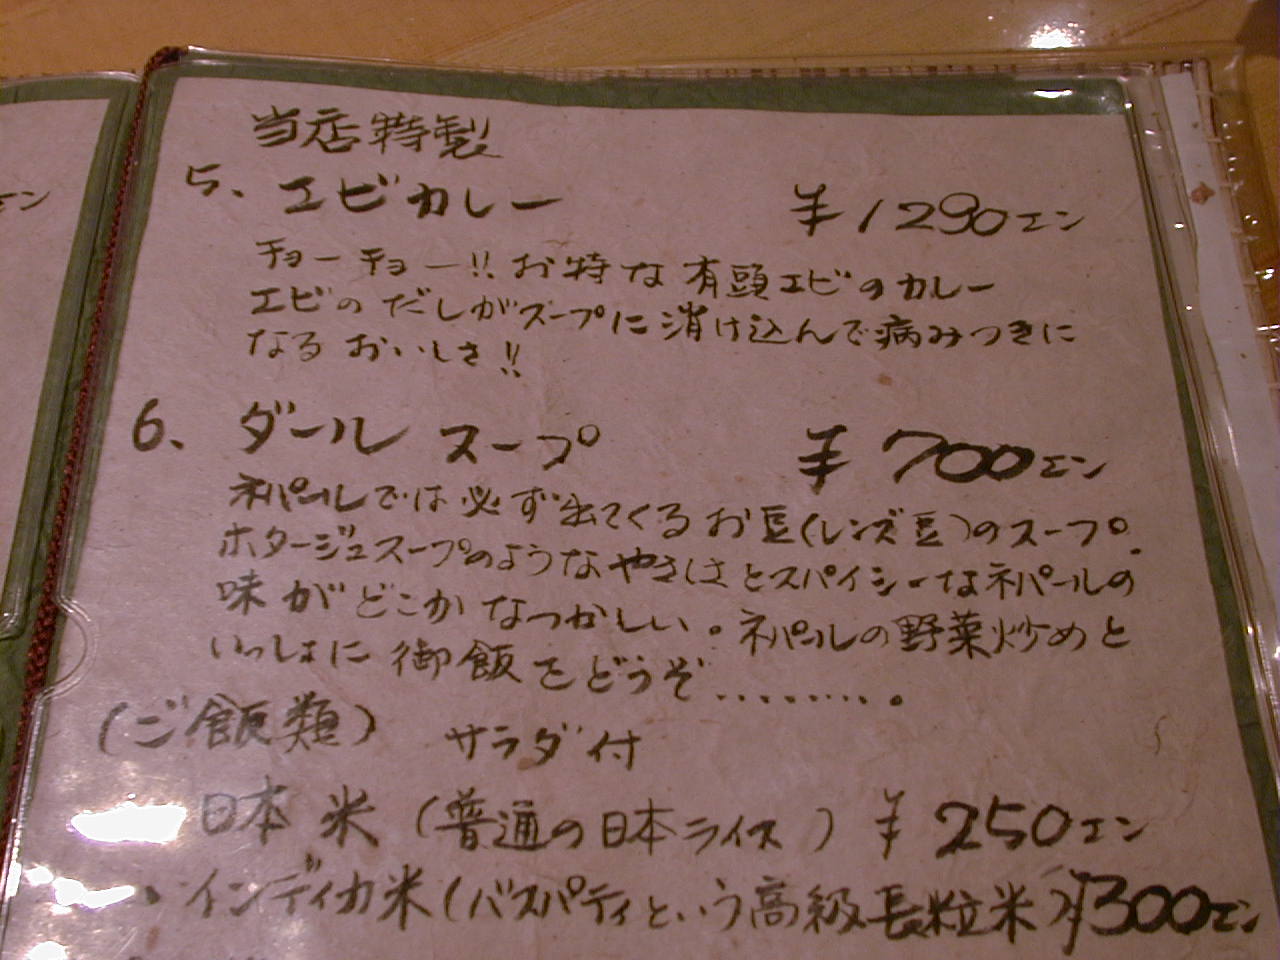 当店特製
5、エビカレー ¥1290エン
チョーチョー!! お特な有頭エビのカレー
エビのだしがスープに消け込んで病みつきに
なるおいしさ!!
6、ダールスープ ¥700エン
ネパールでは必ず出てくるお豆(レンズ豆)のスープ。
ホタージュスープのようなやさしさとスパイシーなネパールの
味がどこかなつかしい。ネパールの野菜炒めと
いっしょに御飯をどうぞ.........。
(ご飯類) サラダ付
日本米(普通の日本ライス) ¥250エン
、インディカ米(バスパティという高級長粒米)¥300エン
エン